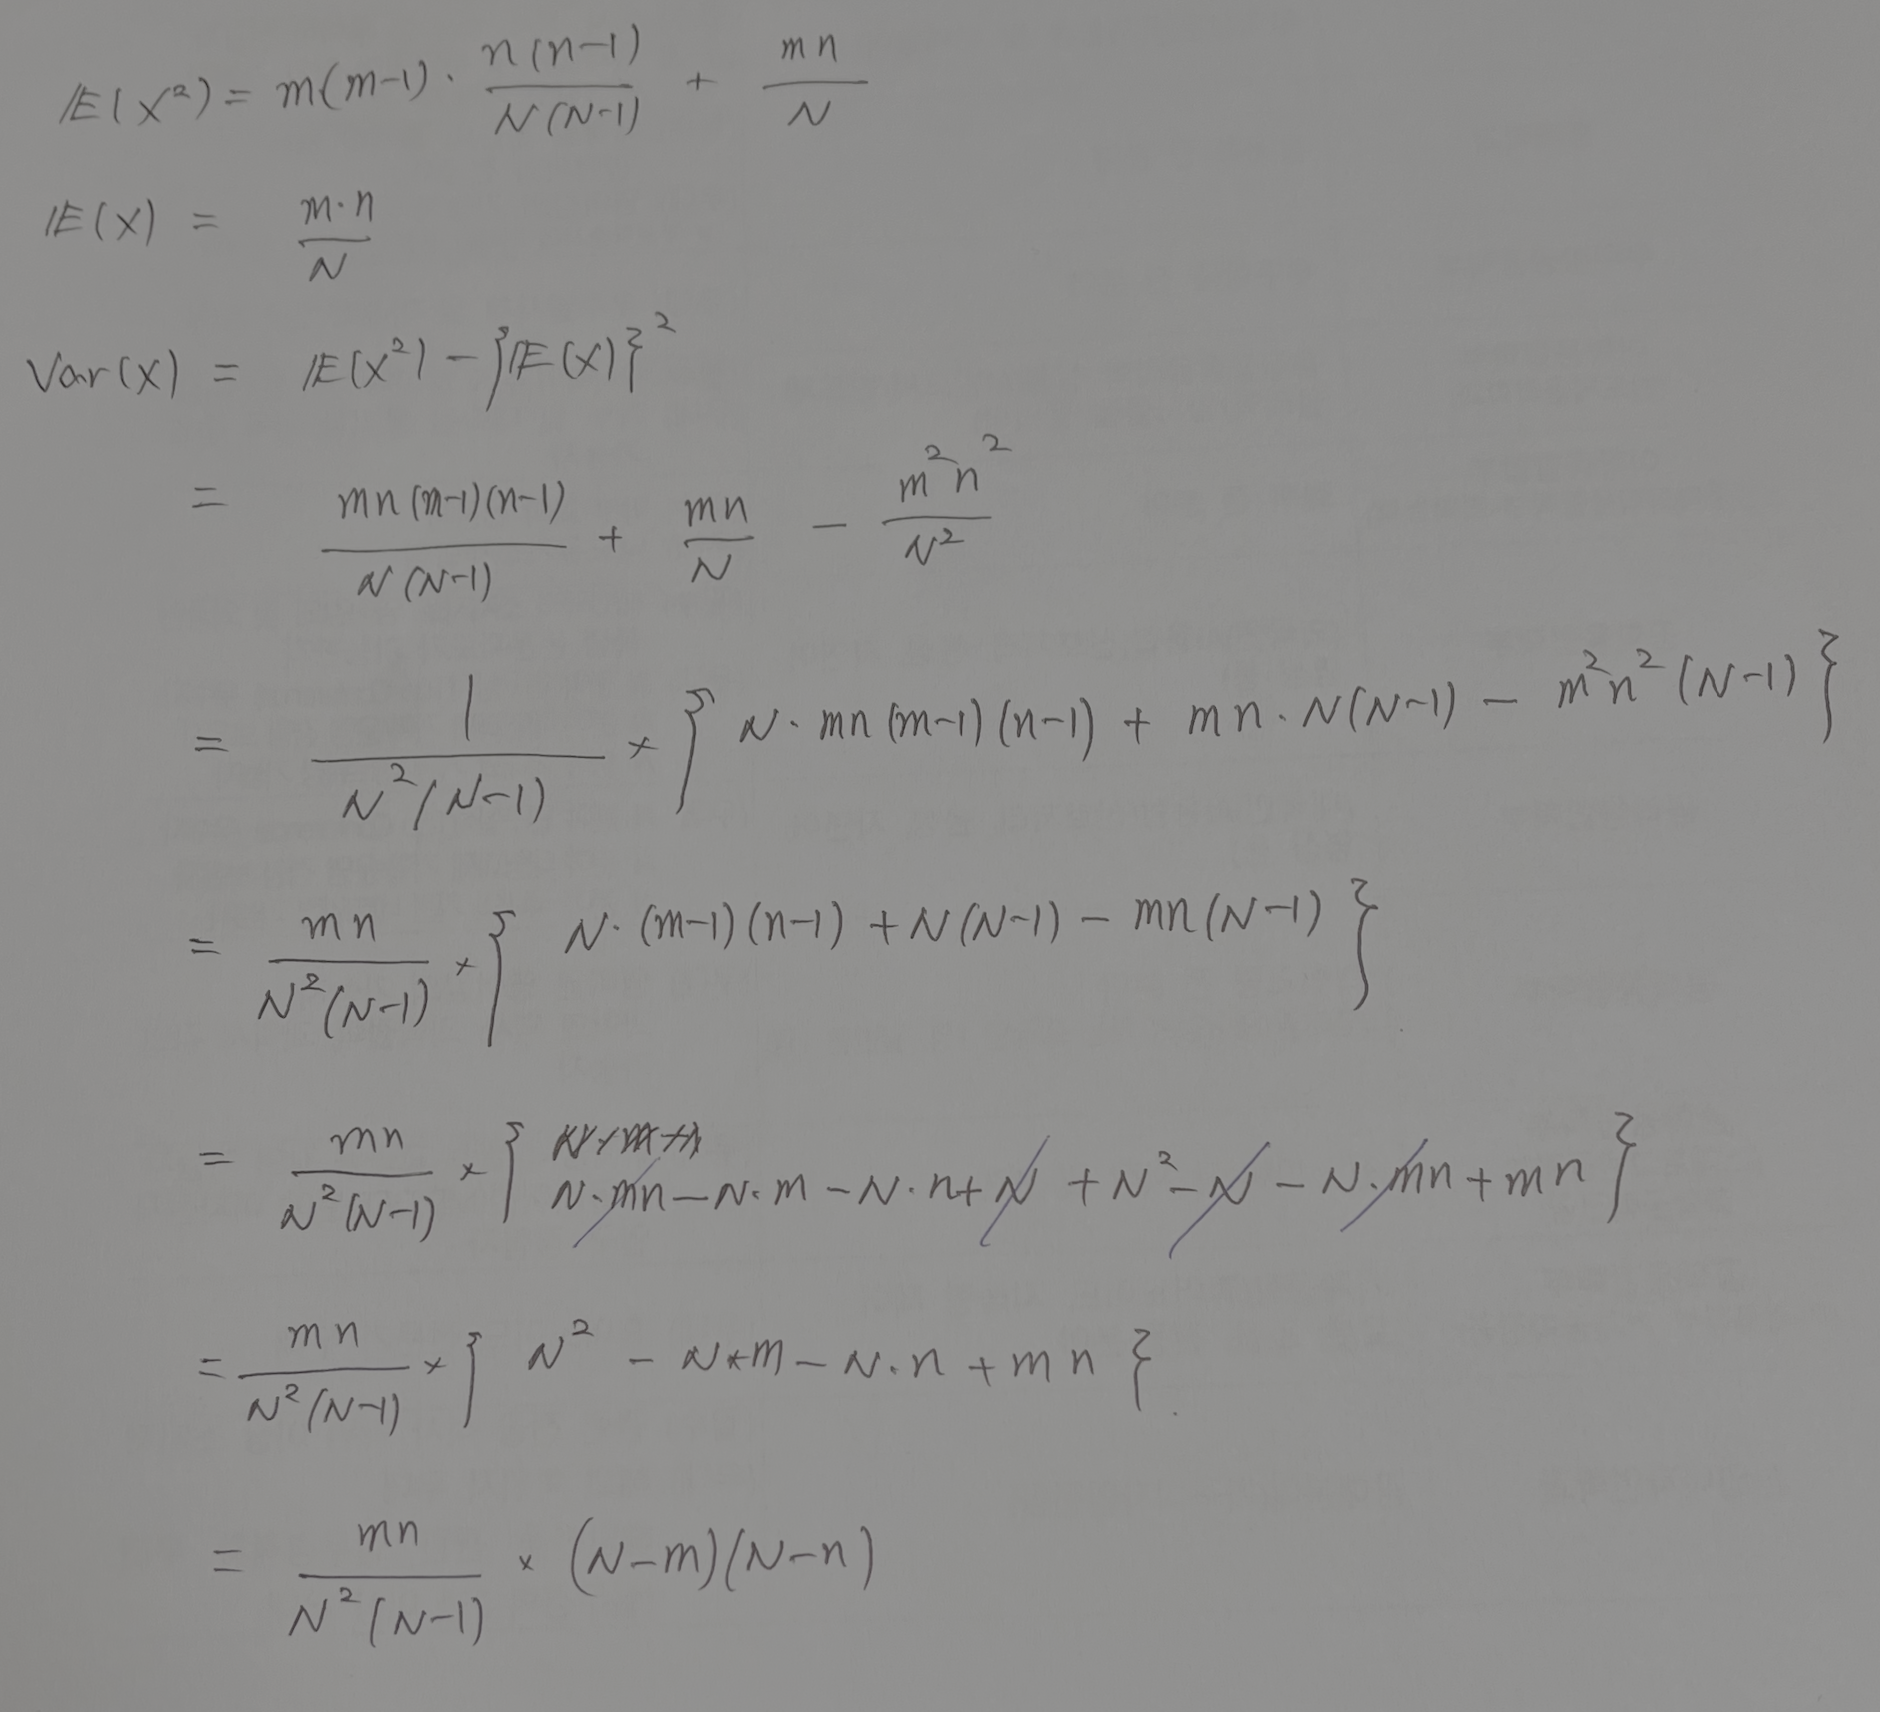 E(X²) = m(m-1) · n(n-1)/N(N-1) + mn/N
E(X) = m·n/N
Var(X) = E(X²) - {E(X)}²
= mn(m-1)(n-1)/N(N-1) + mn/N - m²n²/N²
= 1/N²(N-1) × { N·mn(m-1)(n-1) + mn·N(N-1) - m²n²(N-1) }
= mn/N²(N-1) × { N·(m-1)(n-1) + N(N-1) - mn(N-1) }
= mn/N²(N-1) × { N·mn - N·m - N·n + N + N² - N - N·mn + mn }
= mn/N²(N-1) × { N² - N*m - N·n + mn }
= mn/N²(N-1) × (N-m)(N-n)